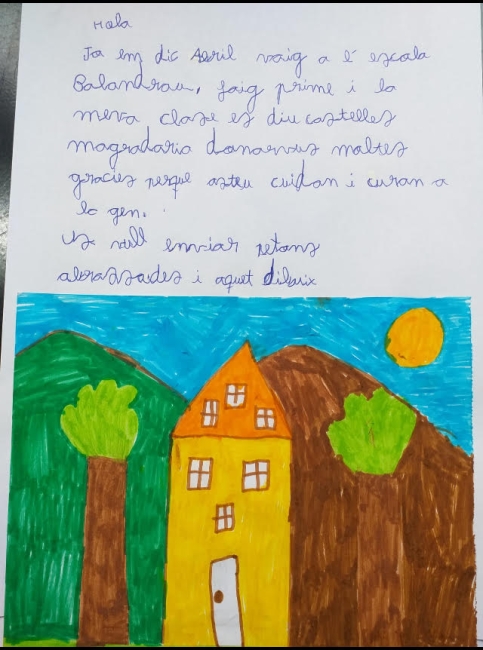 Hola
Jo em dic Abril vaig a l'escola
Balandrau, faig prime i la
meva clase es diu castelles
magradaria donarvus moltes
gracies perque asteu cuidan i curan a
la gen.
Us vull enviar petons
abrassades i aquet dibuix